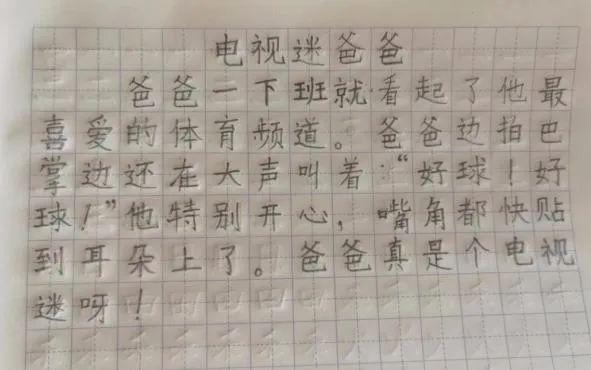 电视迷爸爸
爸爸一下班就看起了他最
喜爱的体育频道。爸爸边拍巴
掌边还在大声叫着:“好球!好
球!”他特别开心,嘴角都快贴
到耳朵上了。爸爸真是个电视
迷呀!